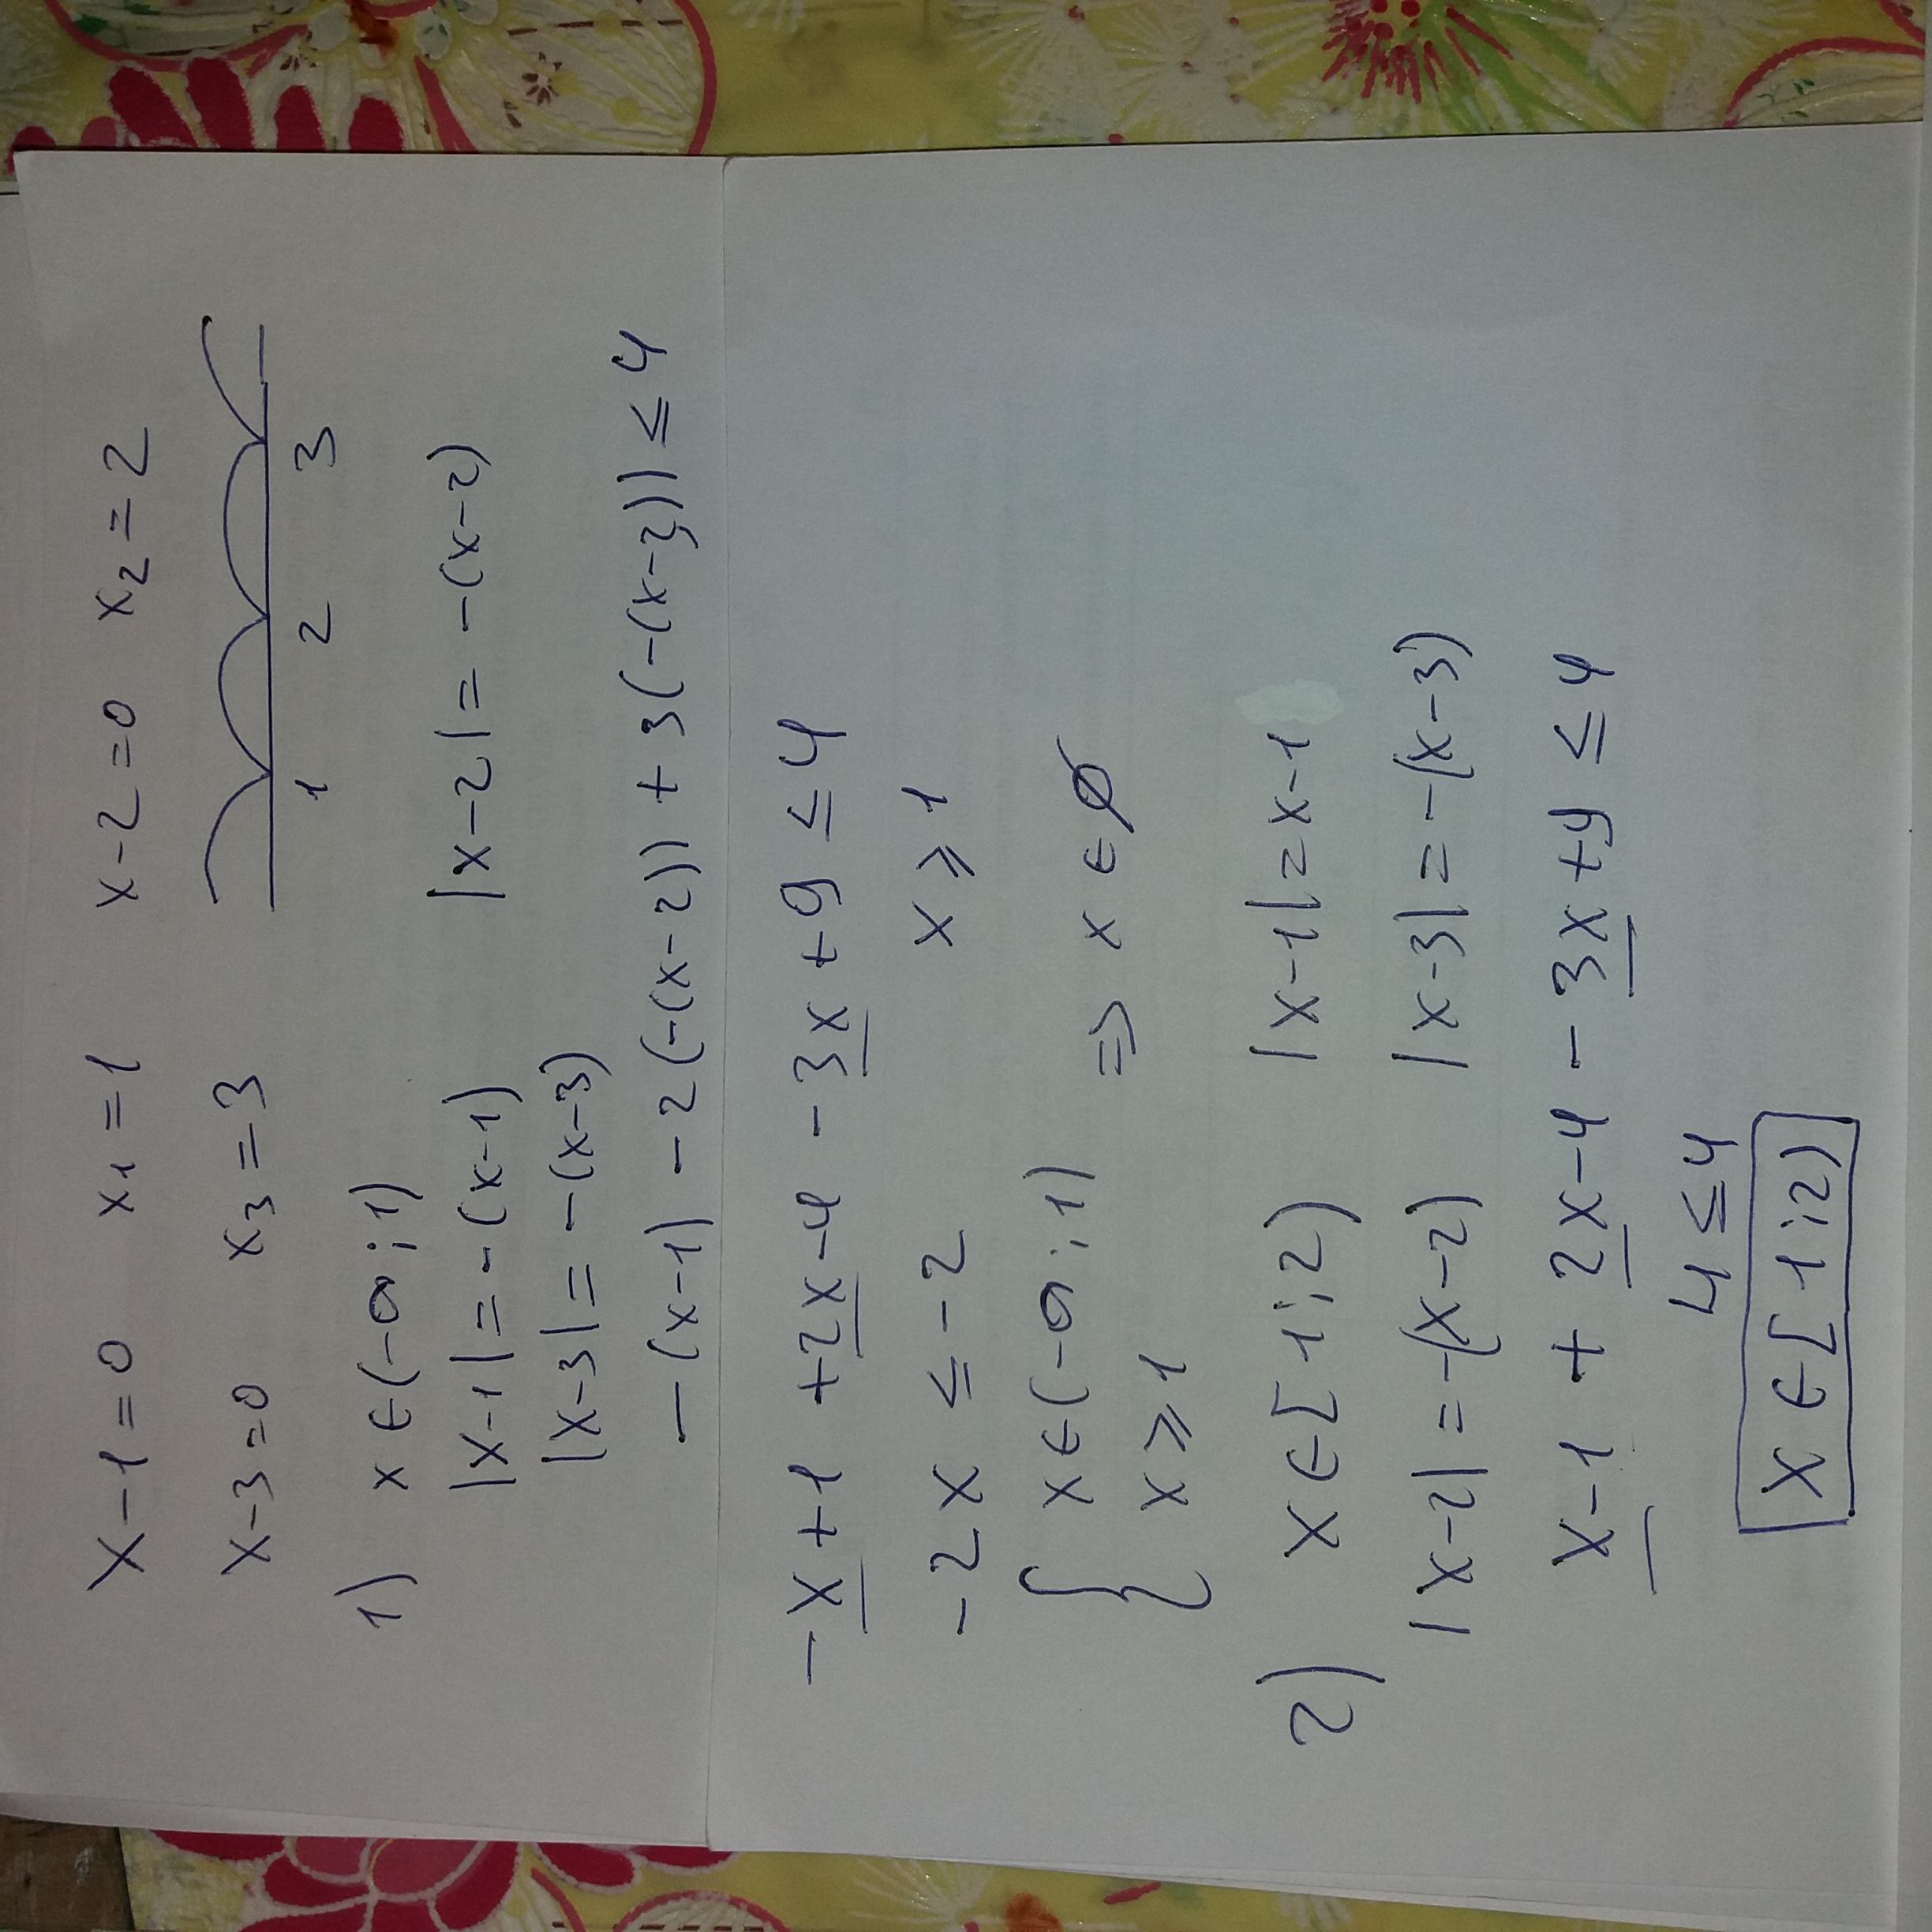 x-1=0 x₁=1 x-2=0 x₂=2
x-3=0 x₃=3
1 2 3
1) x∈(-∞;1)
|x-1|=-(x-1) |x-2|=-(x-2)
|x-3|=-(x-3)
-(x-1)-2(-(x-2))+3(-(x-3))≤4
-x+1+2x-4-3x+9≤4
-2x≤-2 x≥1
{x∈(-∞;1)
x≥1 => x∈∅
2) x∈[1;2) |x-1|=x-1
|x-2|=-(x-2) |x-3|=-(x-3)
x-1+2x-4-3x+9≤4
4≤4
x∈[1;2)